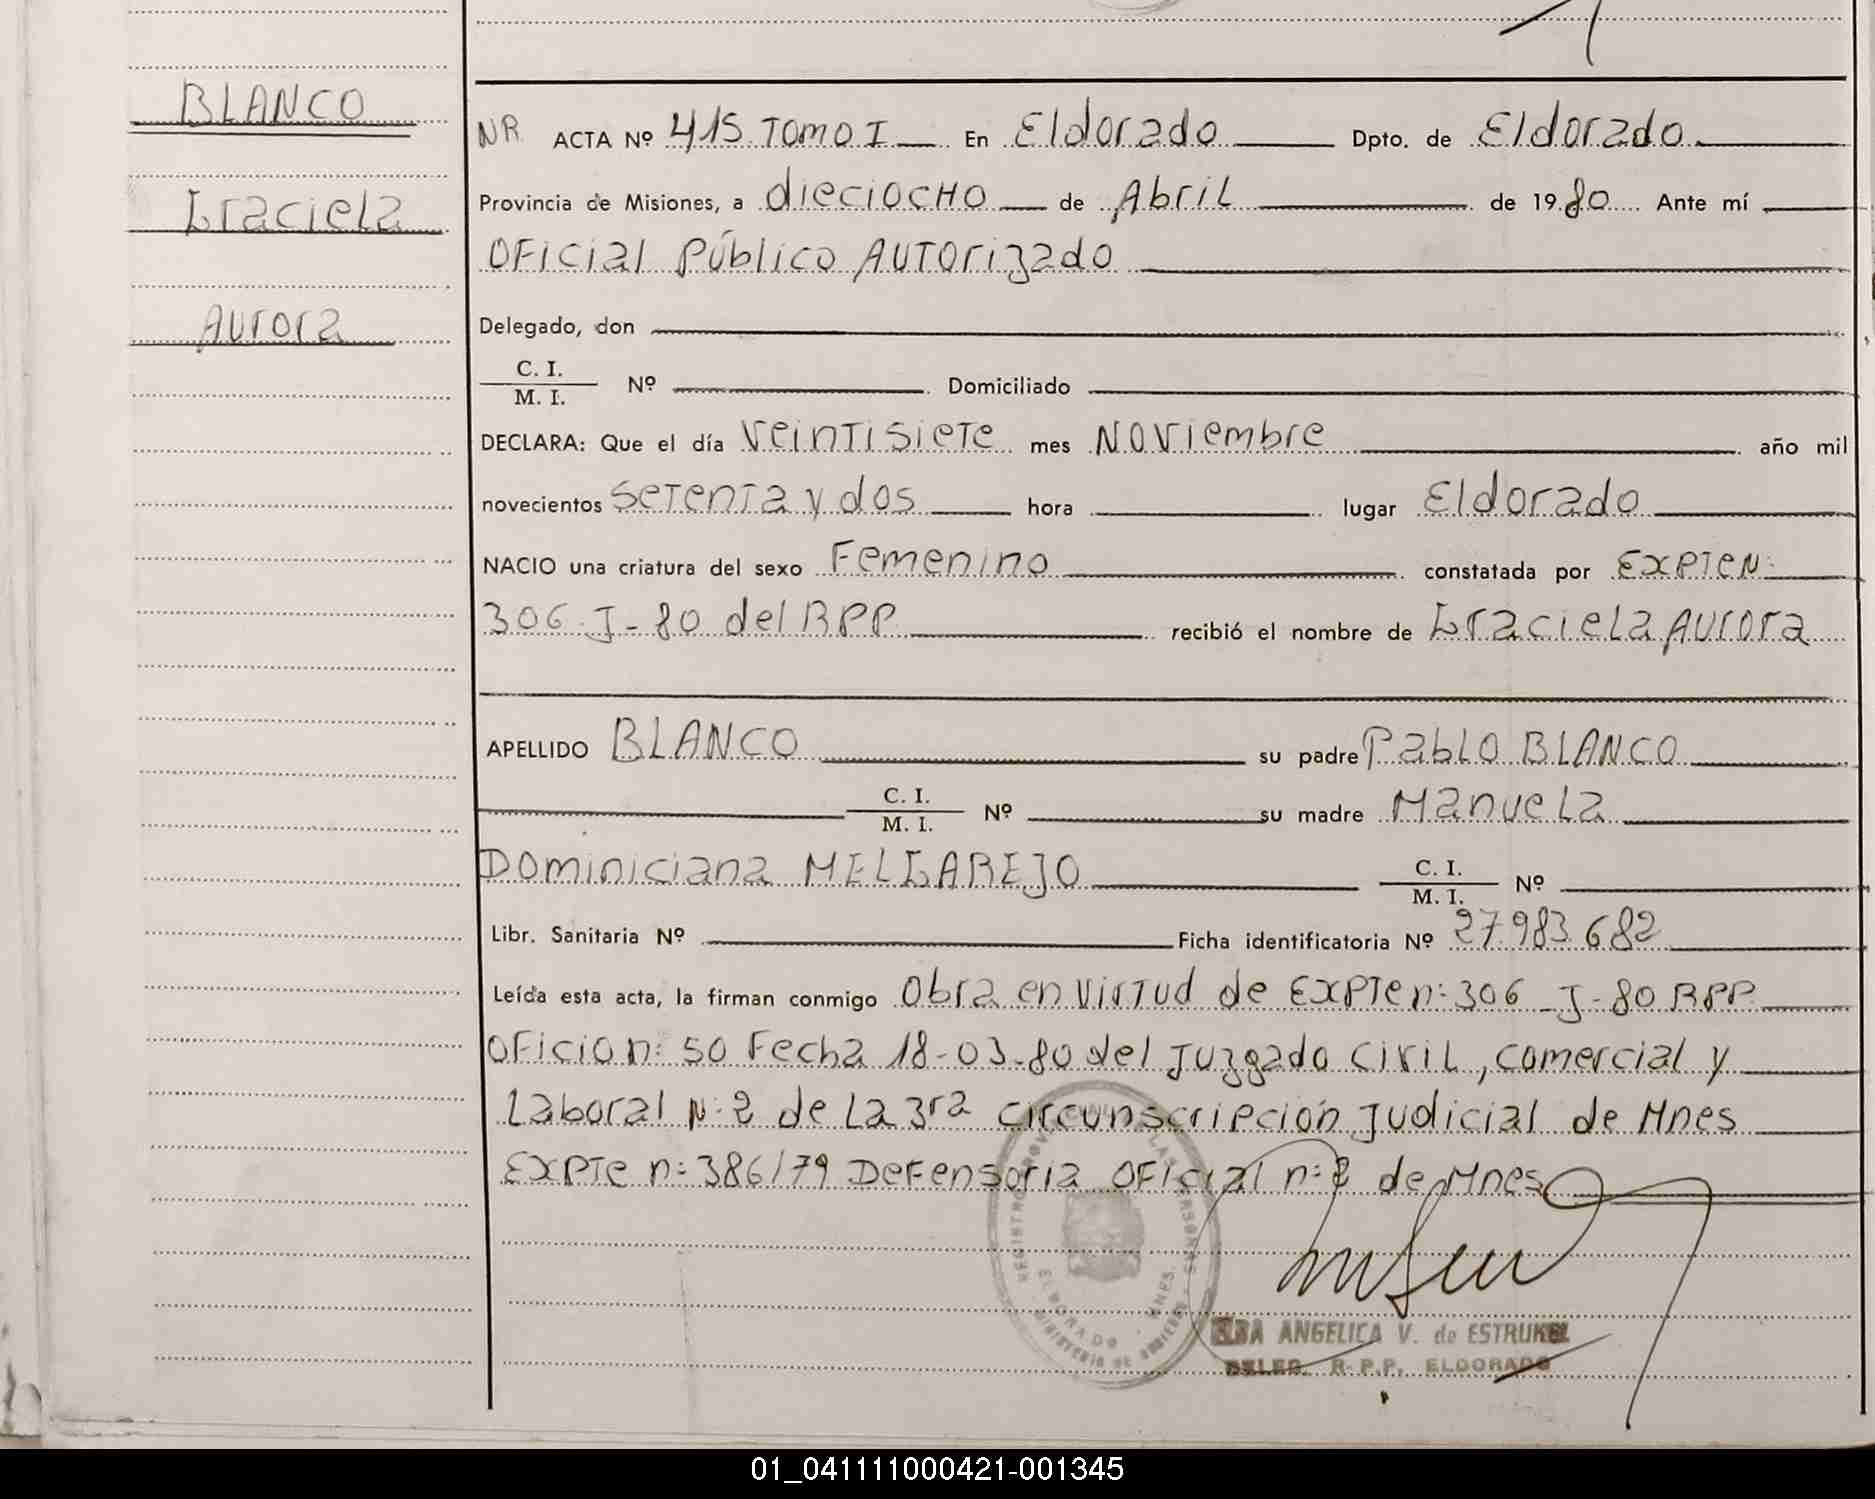 BLANCO
Graciela
Aurora
NR. ACTA Nº 415. TOMO I En Eldorado Dpto. de Eldorado
Provincia de Misiones, a dieciocho de Abril de 1980 Ante mí
Oficial Público Autorizado
Delegado, don
C. I.
M. I.
Nº Domiciliado
DECLARA: Que el día veintisiete mes Noviembre año mil
novecientos setenta y dos hora lugar Eldorado
NACIO una criatura del sexo Femenino constatada por Expte n:
306-J-80 del RPP recibió el nombre de Graciela Aurora
APELLIDO BLANCO su padre Pablo BLANCO
C. I.
M. I.
Nº su madre Manuela
Dominiciana MELGAREJO C. I.
M. I.
Nº
Libr. Sanitaria Nº Ficha identificatoria Nº 27.983.682
Leída esta acta, la firman conmigo Obra en virtud de Expte n: 306-J-80 RPP
Oficio n: 50 Fecha 18-03-80 del Juzgado Civil, comercial y
Laboral N: 2 de la 3ra circunscripción Judicial de Mnes
Expte n: 386/79 Defensoria Oficial n: 2 de Mnes
REGISTRO PROV. DE LAS PERSONAS
ELDORADO - MNES.
MINISTERIO DE GOBIERNO
ELBA ANGELICA V. de ESTRUKEL
DELEG. R.P.P. ELDORADO
01_041111000421-001345